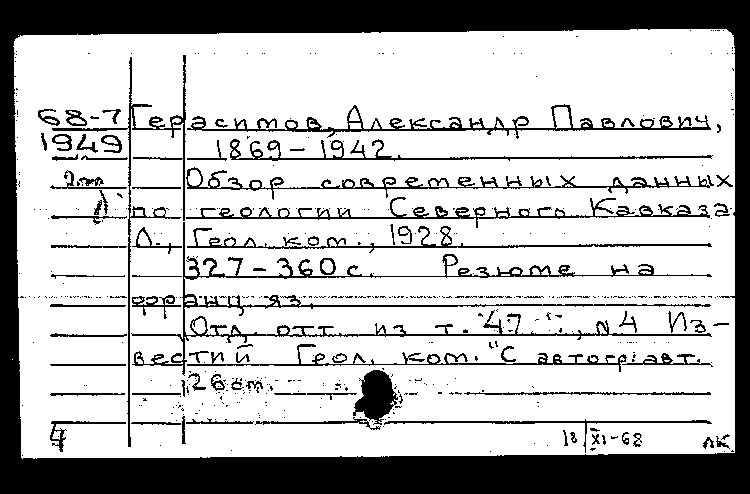 68-7 Герасимов, Александр Павлович,
1949 1869-1942.
Обзор современных данных
по геологии Северного Кавказа.
Л., Геол. ком., 1928.
327-360 с. Резюме на
франц. яз.
Отд. отт. из т. 47, №4 Из-
вестий Геол. ком. "С автогр. авт.
26 см.
4 18/XI-68 ЛК